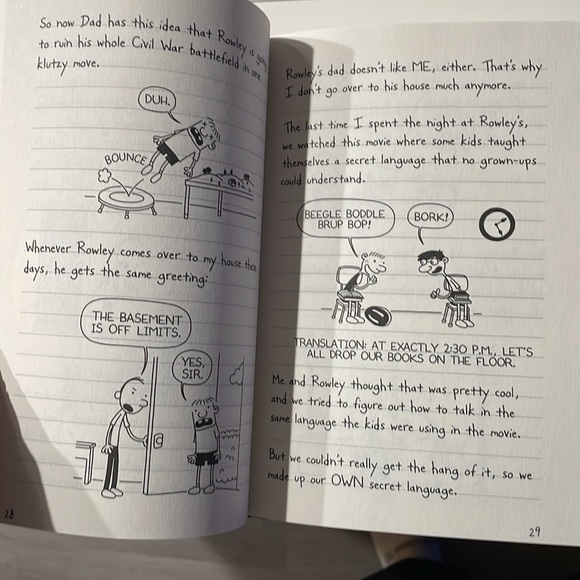 So now Dad has this idea that Rowley is going
to ruin his whole Civil War battlefield in one
klutzy move.
DUH.
BOUNCE
Whenever Rowley comes over to my house these
days, he gets the same greeting:
THE BASEMENT
IS OFF LIMITS.
YES,
SIR.
28
Rowley's dad doesn't like ME, either. That's why
I don't go over to his house much anymore.
The last time I spent the night at Rowley's,
we watched this movie where some kids taught
themselves a secret language that no grown-ups
could understand.
BEEGLE BODDLE
BRUP BOP!
BORK!
TRANSLATION: AT EXACTLY 2:30 P.M., LET'S
ALL DROP OUR BOOKS ON THE FLOOR.
Me and Rowley thought that was pretty cool,
and we tried to figure out how to talk in the
same language the kids were using in the movie.
But we couldn't really get the hang of it, so we
made up our OWN secret language.
29